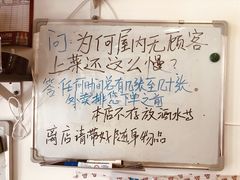 问:为何屋内无顾客
上菜还这么慢?
答:任何时间总有几张至几十张
外卖排您单之前
本店不存放酒水共
离店请带好随身物品